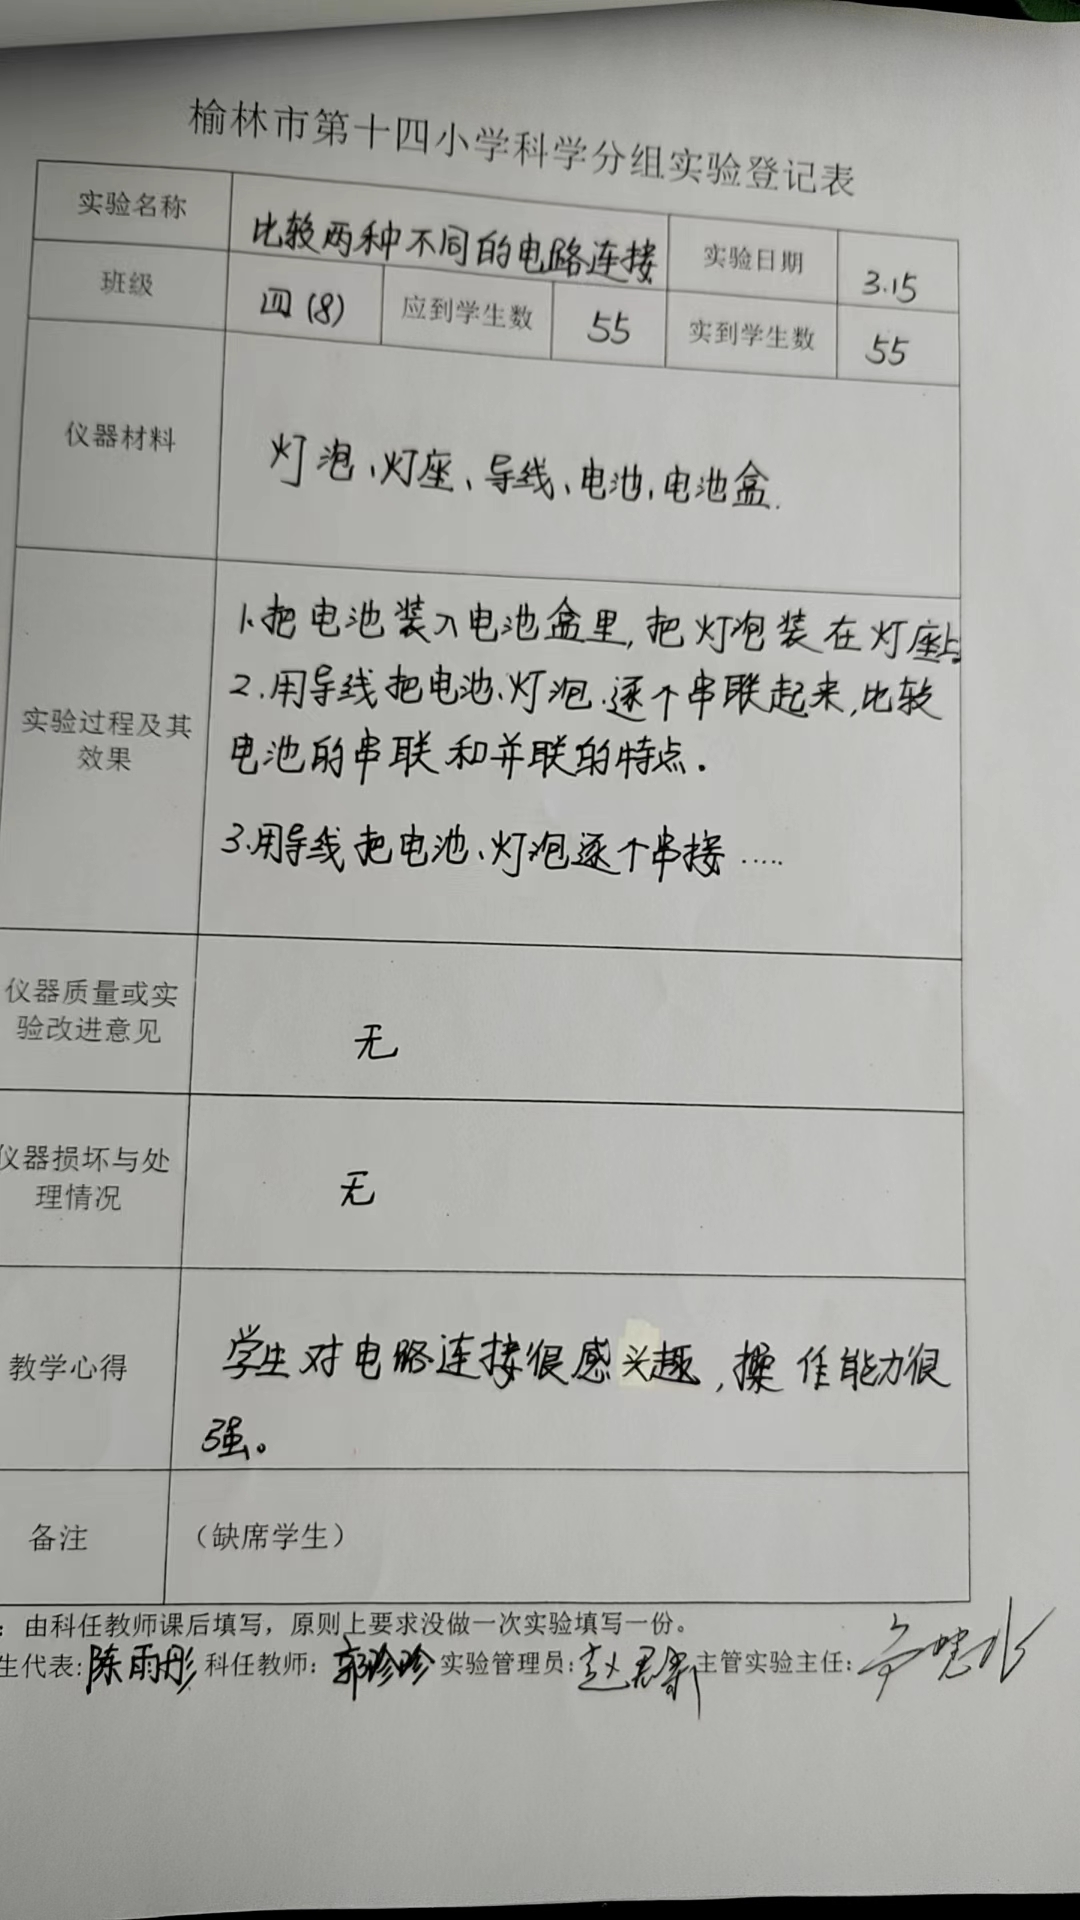 榆林市第十四小学科学分组实验登记表
实验名称 比较两种不同的电路连接 实验日期 3.15
班级 四(8) 应到学生数 55 实到学生数 55
仪器材料 灯泡、灯座、导线、电池、电池盒.
1.把电池装入电池盒里,把灯泡装在灯座上。
2.用导线把电池、灯泡.逐个串联起来,比较
实验过程及其
效果
电池的串联和并联的特点.
3.用导线把电池、灯泡逐个串接.....
仪器质量或实
验改进意见
无
仪器损坏与处
理情况
无
教学心得
学生对电路连接很感兴趣,操作能力很
强。
备注 (缺席学生)
：由科任教师课后填写，原则上要求没做一次实验填写一份。
生代表:陈雨彤 科任教师：郭珍珍 实验管理员: 主管实验主任: